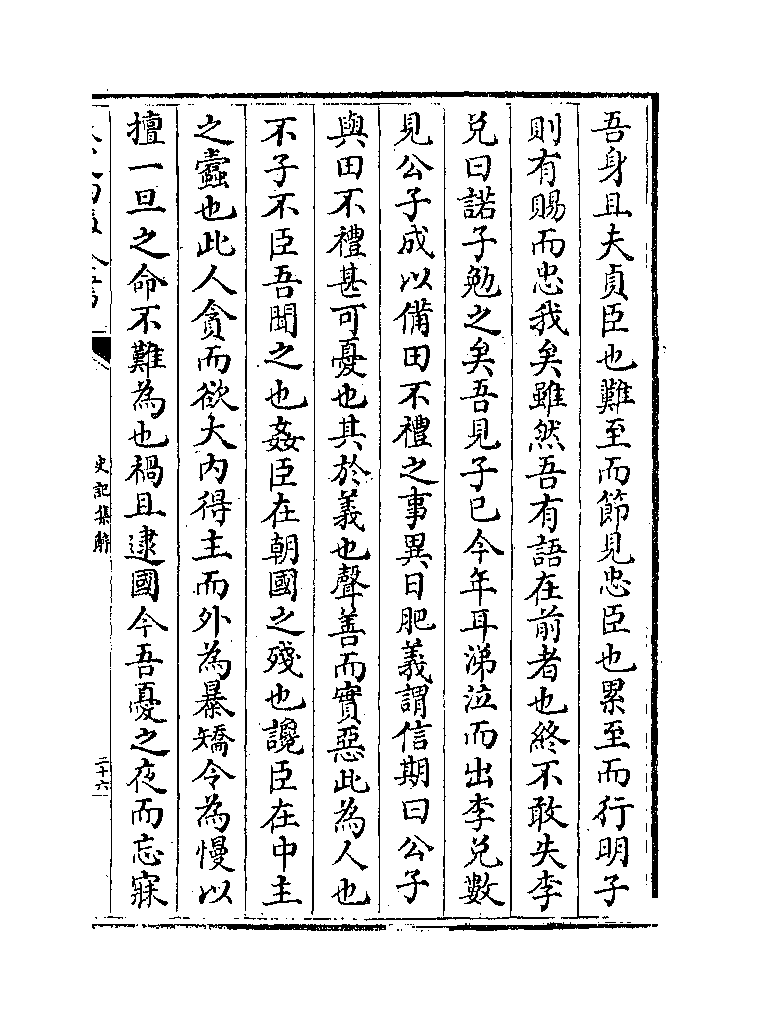 吾身且夫貞臣也難至而節見忠臣也累至而行明子
則有賜而忠我矣雖然吾有語在前者也終不敢失李
兌曰諾子勉之矣吾見子已今年耳涕泣而出李兌數
見公子成以備田不禮之事異日肥義謂信期曰公子
與田不禮甚可憂也其於義也聲善而實惡此為人也
不子不臣吾聞之也姦臣在朝國之殘也讒臣在中主
之蠹也此人貪而欲大內得主而外為暴矯令為慢以
擅一旦之命不難為也禍且逮國今吾憂之夜而忘寐
史記集解
二十六